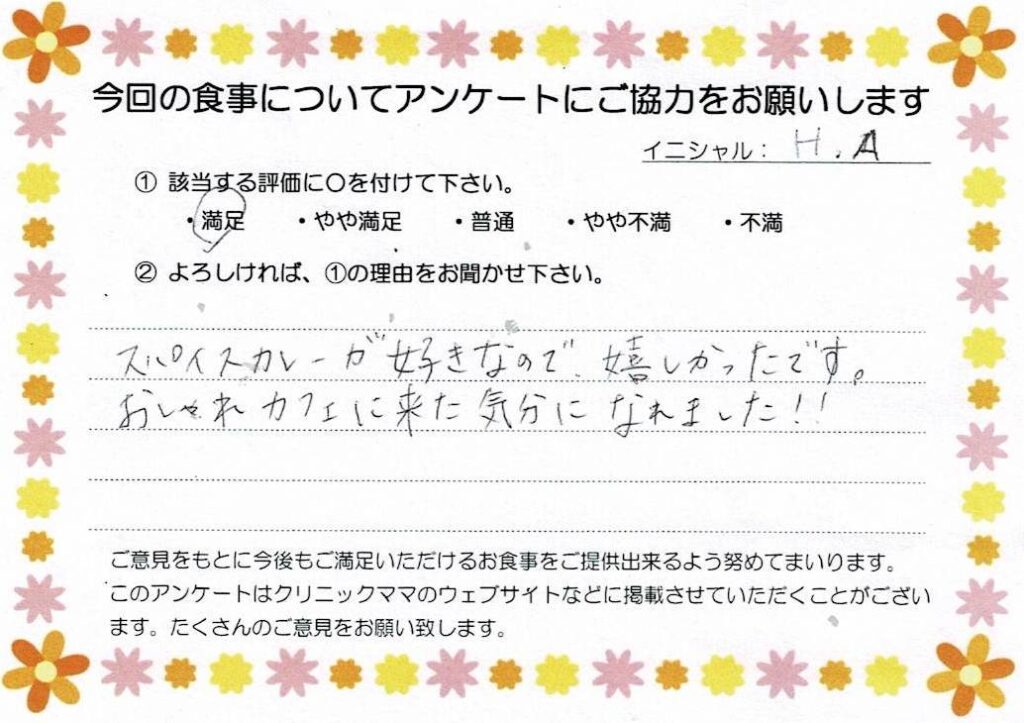 今回の食事についてアンケートにご協力をお願いします
イニシャル： H.A
① 該当する評価に〇を付けて下さい。
・満足 ・やや満足 ・普通 ・やや不満 ・不満
② よろしければ、①の理由をお聞かせ下さい。
スパイスカレーが好きなので、嬉しかったです。
おしゃれカフェに来た気分になれました！！
ご意見をもとに今後もご満足いただけるお食事をご提供出来るよう努めてまいります。
このアンケートはクリニックママのウェブサイトなどに掲載させていただくことがござい
ます。たくさんのご意見をお願い致します。